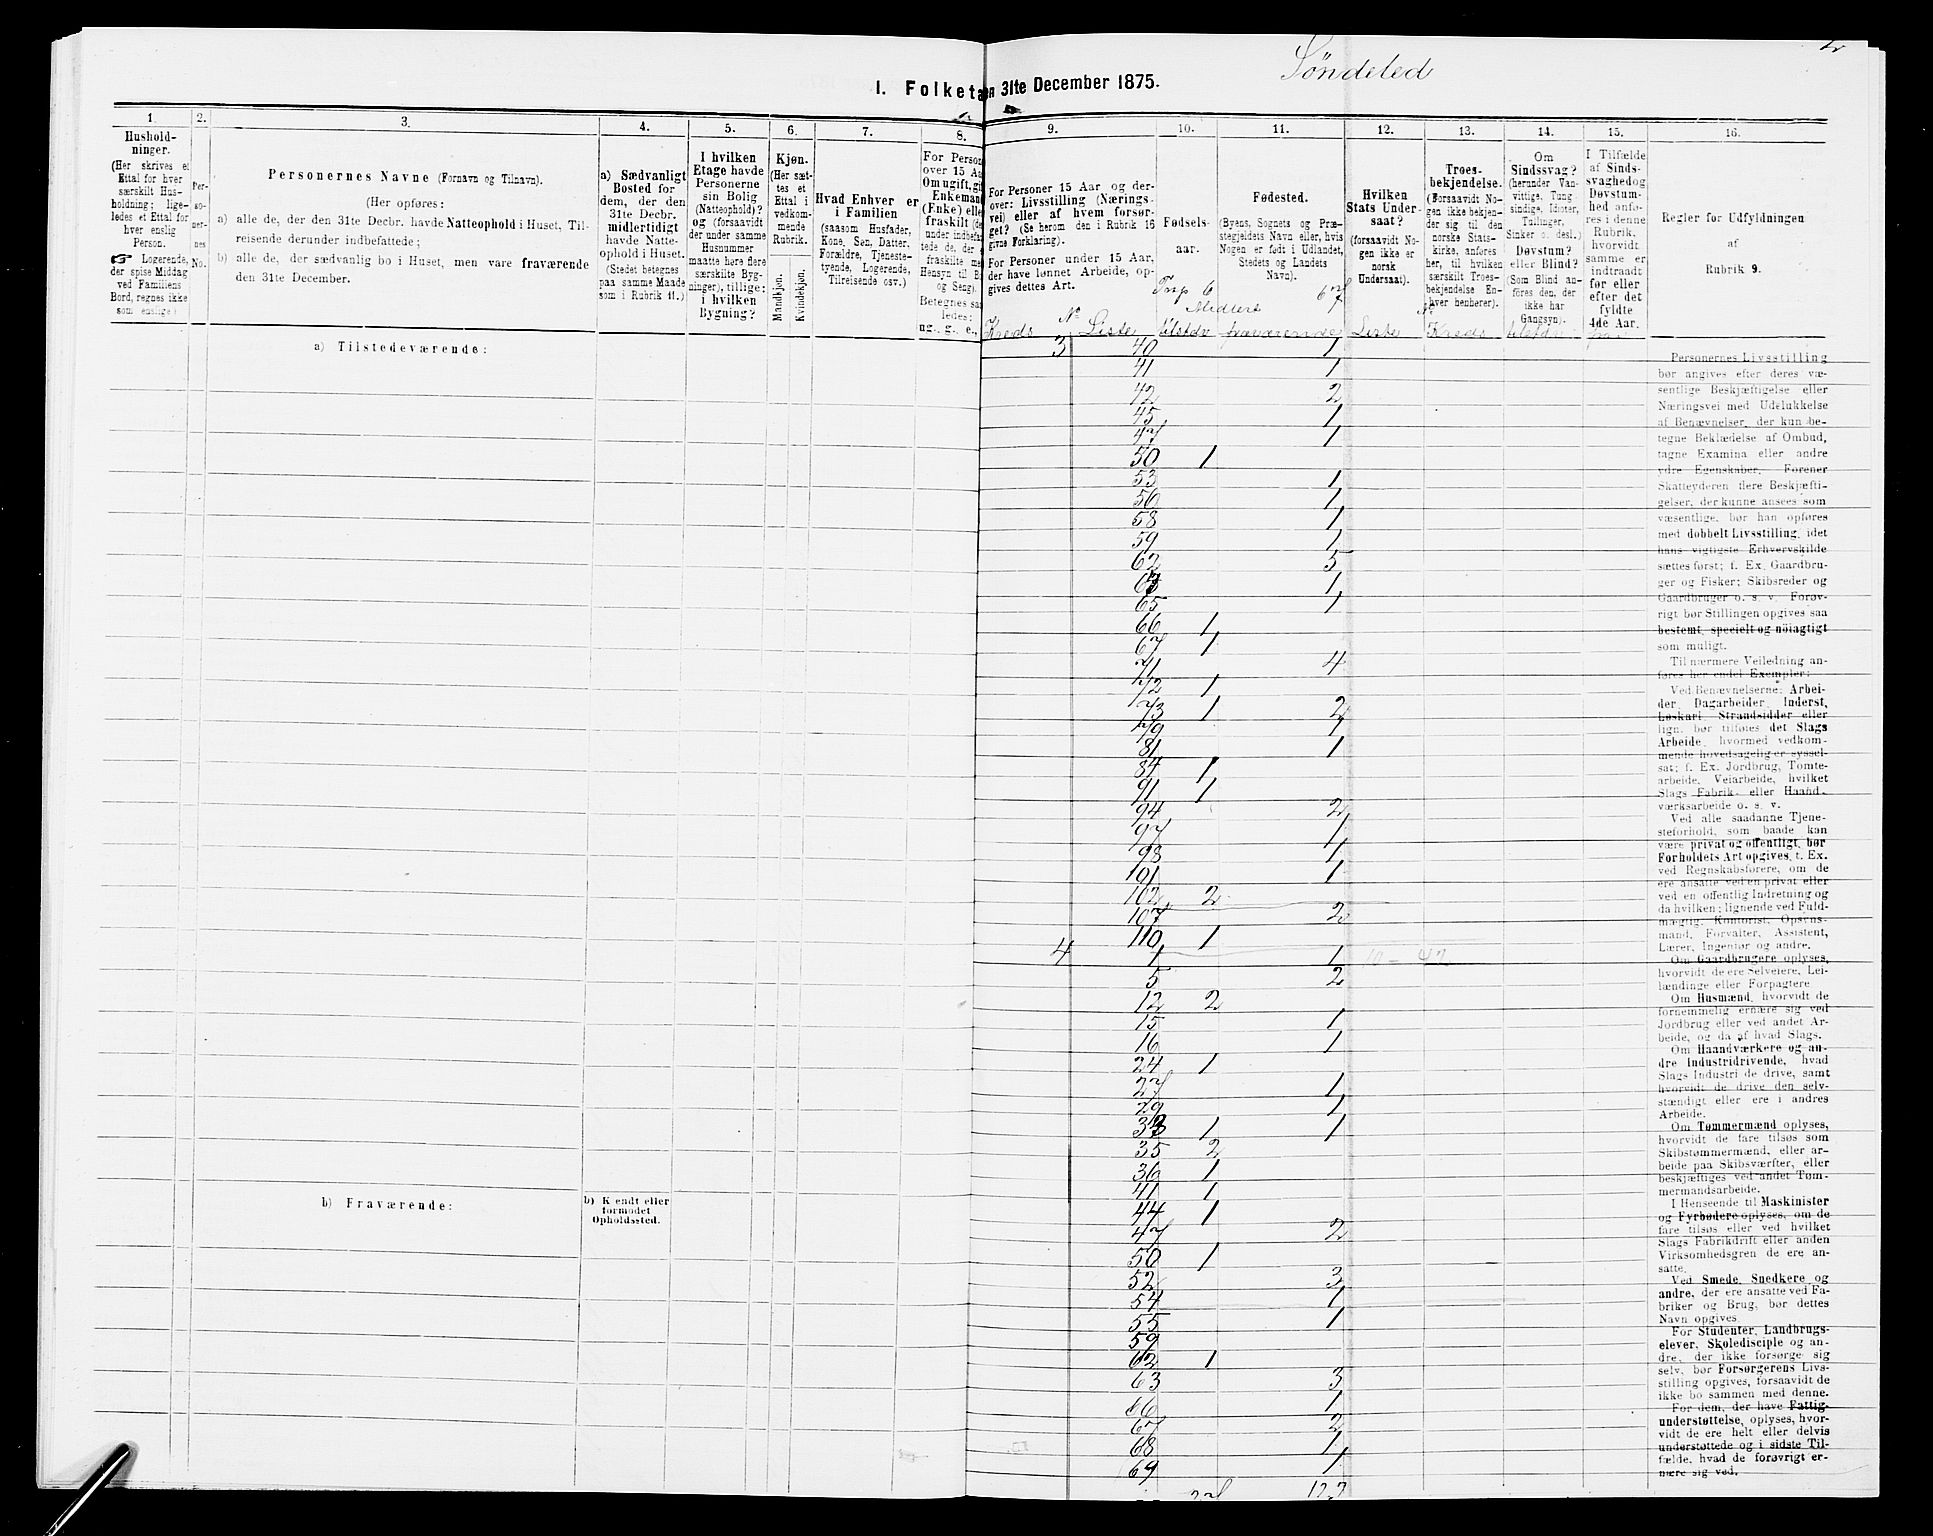 Søndeled
2
I. Folketæ
en 31te December 1875.
1.
2.
3.
4.
5.
6.
7.
8.
9.
10.
11.
12.
13.
14.
15.
16.
Hushold-
ninger.
(Her skrives et
Ettal for hver
særskilt Hus-
holdning; lige-
ledes et Ettal for
hver enslig
Person.
☞ Logerende,
der spise Middag
ved Familiens
Bord, regnes ikke
som enslige.)
Per-
so-
ner-
nes
No.
Personernes Navne (Fornavn og Tilnavn).
(Her opføres:
a) alle de, der den 31te Decbr. havde Natteophold i Huset, Til-
reisende derunder indbefattede;
b) alle de, der sædvanlig bo i Huset, men vare fraværende
den 31te December.
a) Sædvanligt
Bosted for
dem, der den
31te Decbr.
midlertidigt
havde Natte-
ophold i Huset.
(Stedet betegnes
paa samme Maade
som i Rubrik 11.)
I hvilken
Etage havde
Personerne
sin Bolig
(Natteophold)?
og (forsaavidt
der under samme
Husnummer
maatte høre flere
særskilte Byg-
ninger), tillige:
i hvilken
Bygning?
Kjøn.
(Her sæt-
tes et
Ettal i
vedkom-
mende
Rubrik.
Mandkjøn.
Kvindekjøn.
Hvad Enhver er
i Familien
(saasom Husfader,
Kone, Søn, Datter,
Forældre, Tjeneste-
tyende, Logerende,
Tilreisende osv.)
For Person
over 15 Aa
Om ugift, gi
Enkeman
(Enke) elle
fraskilt (de
under indbefat-
tede de, de
fraskilte me
Hensyn til B
og Seng).
Betegnes saa
ledes:
ug., g., e.,
For Personer 15 Aar og der-
over: Livsstilling (Nærings-
vei) eller af hvem forsør-
get? (Se herom den i Rubrik 16
givne Forklaring).
For Personer under 15 Aar,
der have lønnet Arbeide, op-
gives dettes Art.
Fødsels-
aar.
Fødested.
(Byens, Sognets og Præ-
stegjeldets Navn eller, hvis
Nogen er født i Udlandet,
Stedets og Landets
Navn).
Hvilken
Stats Under-
saat?
(forsaavidt No-
gen ikke er
norsk
Undersaat).
Troes-
bekjendelse.
(Forsaavidt No-
gen ikke bekjen-
der sig til den
norske Stats-
kirke, anføres
her, til hvilken
særskilt Troes-
bekjendelse En-
hver henhører).
Om
Sindssvag?
(herunder Van-
vittige, Tung-
sindige, Idioter,
Tullinger,
Sinker o. desl.)
Døvstum?
eller Blind?
(Som Blind an-
føres den, der
ikke har
Gangsyn).
I Tilfælde
af Sinds-
svaghed og
Døvstum-
hed anfø-
res i denne
Rubrik,
hvorvidt
samme er
indtraadt
før eller
efter det
fyldte
4de Aar.
Regler for Udfyldningen
af
Rubrik 9.
6
67
Midlert
Kreds No Liste tilstdv fraværende Liste No Kreds tilstdv
a) Tilstedeværende:
3 40 1
41 1
42 2
45 1
47 1
50 1
53 1
56 1
58 1
59 1
62 5
63 1
65 1
66 1
67 1
71 4
72 1
73 1 2
79 1
81 1
84 1
91 1
94 2
97 1
98 1
101 1
102 2
107 2
110 1
4 1 1 10 - 47
5 2
12 2
15 1
16 1
24 1
27 1
29 1
33 1 1
35 2
36 1
41 1
44 1
47 2
50 1
52 3
54 1
55 1
59
62 1
63 3
66 1
67 2
68 1
69 1
b) Fraværende:
b) Kjendt eller
formodet
Opholdssted.
Personernes Livsstilling
bør angives efter deres væ-
sentlige Beskjæftigelse eller
Næringsvei med Udelukkelse
af Benævnelser, der kun be-
tegne Beklædelse af Ombud,
tagne Examina eller andre
ydre Egenskaber. Forener
Skatteyderen flere Beskjæfti-
gelser, der kunne ansees som
væsentlige, bør han opføres
med dobbelt Livsstilling, idet
hans vigtigste Erhvervskilde
sættes først; f. Ex. Gaardbru-
ger og Fisker; Skibsreder og
Gaardbruger o. s. v. Forøv-
rigt bør Stillingen opgives saa
bestemt, specielt og nöiagtigt
som muligt.
Til nærmere Veiledning an-
føres her endel Exempler:
Ved Benævnelserne: Arbei-
der, Dagarbeider, Inderst,
Løskarl, Strandsidder eller
lign. bør tilføies det Slags
Arbeide, hvormed vedkom-
mende hovedsagelig er syssel-
sat; f. Ex. Jordbrug, Tomte-
arbeide, Veiarbeide, hvilket
Slags Fabrik- eller Haand-
værksarbeide o. s. v.
Ved alle saadanne Tjene-
steforhold, som baade kan
være privat og offentligt, bør
Forholdets Art opgives, t. Ex.
ved Regnskabsførere, om de
ere ansatte ved en privat eller
ved en offentlig Indretning og
da hvilken; lignende ved Fuld-
mægtig, Kontorist, Opsyns-
mand, Forvalter, Assistent,
Lærer, Ingeniør og andre.
Om Gaardbrugere oplyses,
hvorvidt de ere Selveiere, Lei-
lændinge eller Forpagtere
Om Husmænd, hvorvidt de
fornemmelig ernære sig ved
Jordbrug eller ved andet Ar-
beide, og da af hvad Slags.
Om Haandværkere og an-
dre Industridrivende, hvad
Slags Industri de drive, samt
hvorvidt de drive den selv-
stændigt eller ere i andres
Arbeide.
Om Tømmermænd oplyses,
hvorvidt de fare tilsøs som
Skibstømmermænd, eller ar-
beide paa Skibsværfter, eller
beskjæftiges ved andet Tøm-
mermandsarbeide.
I Henseende til Maskinister
og Fyrbødere oplyses, om de
fare tilsøs eller ved hvilket
Slags Fabrikdrift eller anden
Virksomhedsgren de ere an-
satte.
Ved Smede, Snedkere og
andre, der ere ansatte ved Fa-
briker og Brug, bør dettes
Navn opgives.
For Studenter, Landbrugs-
elever, Skoledisciple og an-
dre, der ikke forsørge sig
selv, bør Forsørgerens Livs-
stilling opgives, forsaavidt de
ikke bo sammen med denne.
For dem, der have Fattig-
understøttelse, oplyses, hvor-
vidt de ere helt eller delvis
understøttede og i sidste Til-
fælde, hvad de forøvrigt er-
nære sig ved.